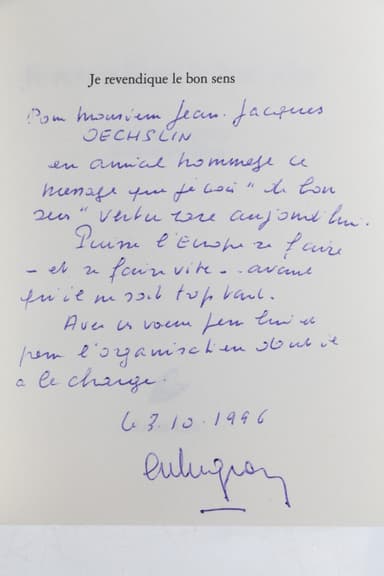 Je revendique le bon sens
Pour Monsieur Jean-Jacques
OECHSLIN
en amical hommage ce
message que je crois "de bon
sens" vertu rare aujourd'hui.
Puisse l'Europe se faire
- et se faire vite - avant
qu'il ne soit trop tard.
Avec ces voeux pour lui et
pour l'organisation dont il
a la charge.
le 3.10.1996